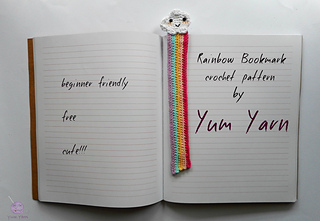 beginner friendly
free
cute!!!
Rainbow Bookmark
crochet pattern
by
Yum Yarn